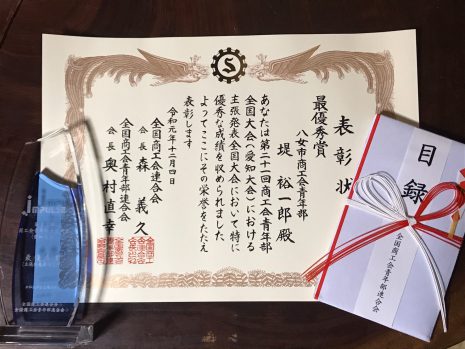 表彰状
最優秀賞
八女市商工会青年部
堤 裕一郎 殿
あなたは第二十一回商工会青年部
全国大会(愛知大会)における
主張発表全国大会において特に
優秀な成績を収められました
よってここにその栄誉をたたえ
表彰します
令和元年十二月四日
全国商工会連合会
会長 森 義久
全国商工会青年部連合会
会長 奥村直幸
目録
全国商工会青年部連合会